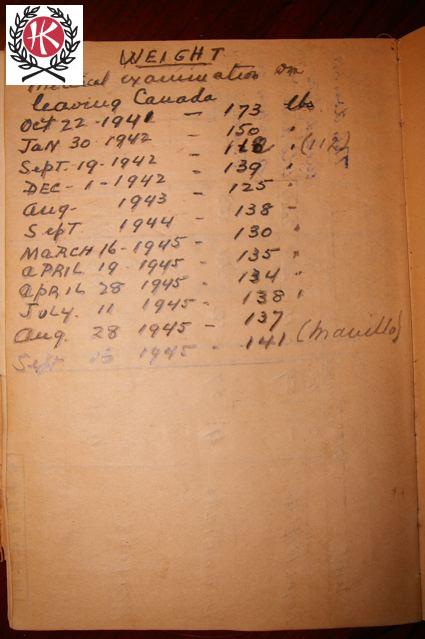 HK
WEIGHT
Medical examination on
leaving Canada
Oct 22-1941 - 173 lbs
JAN 30-1942 - 150 "
Sept. 19-1942 - " (112)
DEC-1-1942 - 139 "
Aug- 1943 - 125 "
Sept 1944 - 138 -
MARCH 16-1945 - 130 "
APRIL 19-1945 - 135 "
APRIL 28 1945 - 134 "
JULY. 11 1945 - 138 "
Aug. 28 1945 - 137
Sept 1945 - 141 (Manilla)